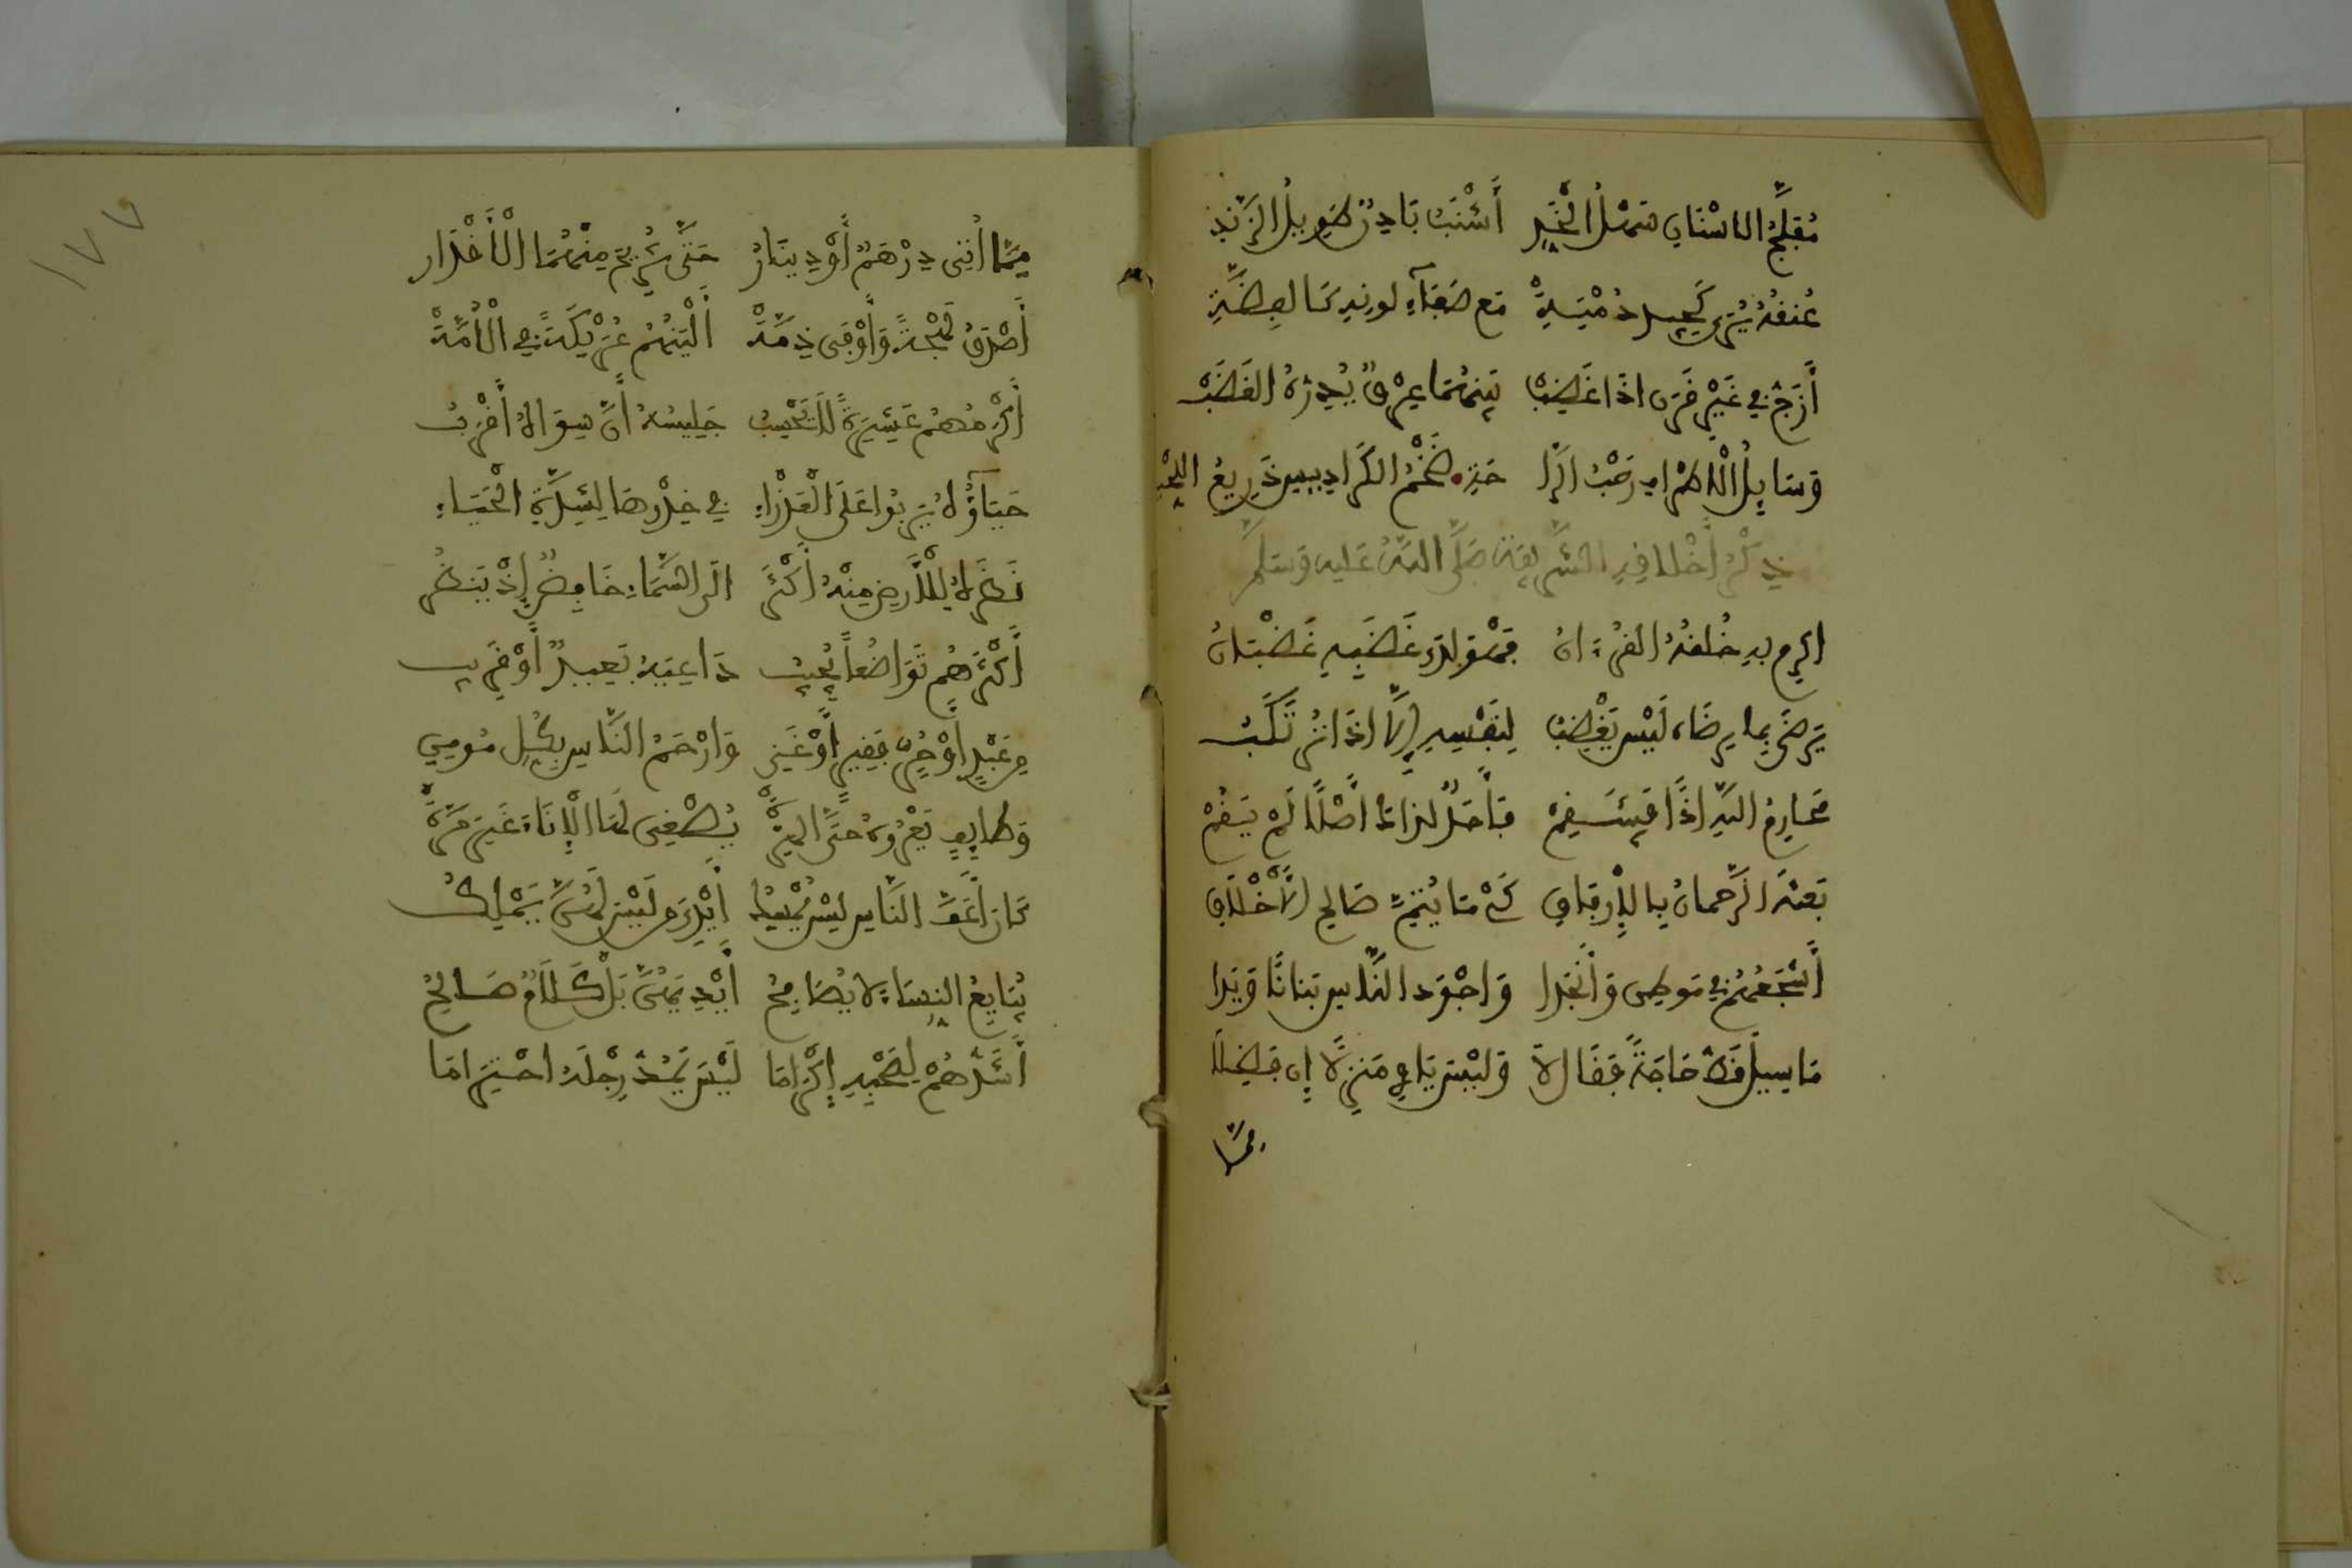 مُفَلَّجُ الاسْنَانِ سَهْلُ الْخَدِّ أَشْنَبُ بَادِنٌ طَوِيلُ الزَّنْدِ
عُنُقُهُ يُرَى كَجِيدِ دُمْيَةِ مَع صَفَآءِ لونِهِ كَالفِضَّةِ
أَزَجُّ فِي غَيْرِ قَرَنٍ اذَا غَضِبْ بَيْنَهُمَا عِرْقٌ يُدِرُّهُ الغَضَبْ
وَسَايِلُ الْاطْرَافِ رَحْبُ الرَّا حَةِ ضَخْمُ الكَرَادِيسِ ذَرِيعُ المِشْيَةِ
ذِكْرُ أَخْلَاقِهِ الشَّرِيفَةِ صَلَّى اللَّهُ عَلَيهِ وَسَلَّمَ
اكرِم بِهِ خُلُقُهُ القُرْءَانُ فَهْوَ لَدَى غَضَبِهِ غَضْبَانُ
يَرضَى بِمَا يرضَاه لَيْسَ يَغْضَبُ لِنَفْسِهِ إِلَّا اذَا تُرْتَكَبُ
مَحَارِمُ اللَّهِ اذًا فَيَنْتَقِمْ فَأَحَدٌ لِذَاكَ أَصْلًا لَمْ يَقُمْ
بَعَثَهُ الرَّحمانُ بِالْإِرفَاقِ كَيْ مَا يُتِمَّ صَالِحَ الْأَخْلَاقِ
أَشْجَعُهُمْ فِي مَوطِنٍ وَأَنْجَدَا وَاجْوَد النَّاسِ بَنَانًا وَيَدَا
مَا سِيلَ قَطُّ حَاجَةً فَقَال لَا وَلَيْسَ يَاوِي مَنزِلًا إِن فَضَلَا
مِمَّا
١٧٧
مِمَّا أُتِي دِرْهَمٌ أَوْ دِينَارُ حَتَّى تُرِيحَ مِنْهُمَا الْأَقْدَار
أَصْدَقُ لَهْجَةً وَأَوْفَى ذِمَّةْ أَلْيَنُهُمْ عَرِيكَةً فِي الْأُمَّةْ
أَكْرَمُهُم عَشِيرَةً لَا يَحْسِبُ جَلِيسُهُ أَنَّ سِوَاهُ أَقْرَبُ
حَيَآؤُهُ يَربُوا عَلَى الْعَذْرَاءِ فِي خِدْرِهَا لِشِدَّةِ الْحَيَاءِ
نَظَرُهُ لِلْأَرضِ مِنْهُ أَكْثَرُ الَى السَّمَاءِ خَافِضٌ إِذْ يَنظُرُ
أَكْثَرُهُم تَوَاضُعاً يُجِيبُ دَاعِيَهُ بَعِيدٌ أَوْ قَرِيب
مِن عَبْدٍ أَوْ حُرٍّ فَقِيرٍ أَوْ غَنِي وَارْحَمُ النَّاسِ بِكُلِّ مُومِنِ
وَطَايِفٍ يَعْرُوهُ حَتَّى الهِرَّةْ يُصْغِي لَهَا الْإِنَاءَ غَيرَ مَرَّةْ
كَانَ أَعَفَّ النَّاسِ لَيْسَ يُمْسِكُ أَيْدِيَ مَن لَيْسَ لَهُنَّ يَمْلِكُ
يُبَايِعُ النِسَاءَ لا يُصَافِحُ أَيْدِيَهُنَّ بَلْ كَلَامٌ صَالِحُ
أَشَدُّهُمْ لِصَحْبِهِ إِكْرَامَا لَيْسَ يَمُدُّ رِجْلَهُ احْتِرَامَا